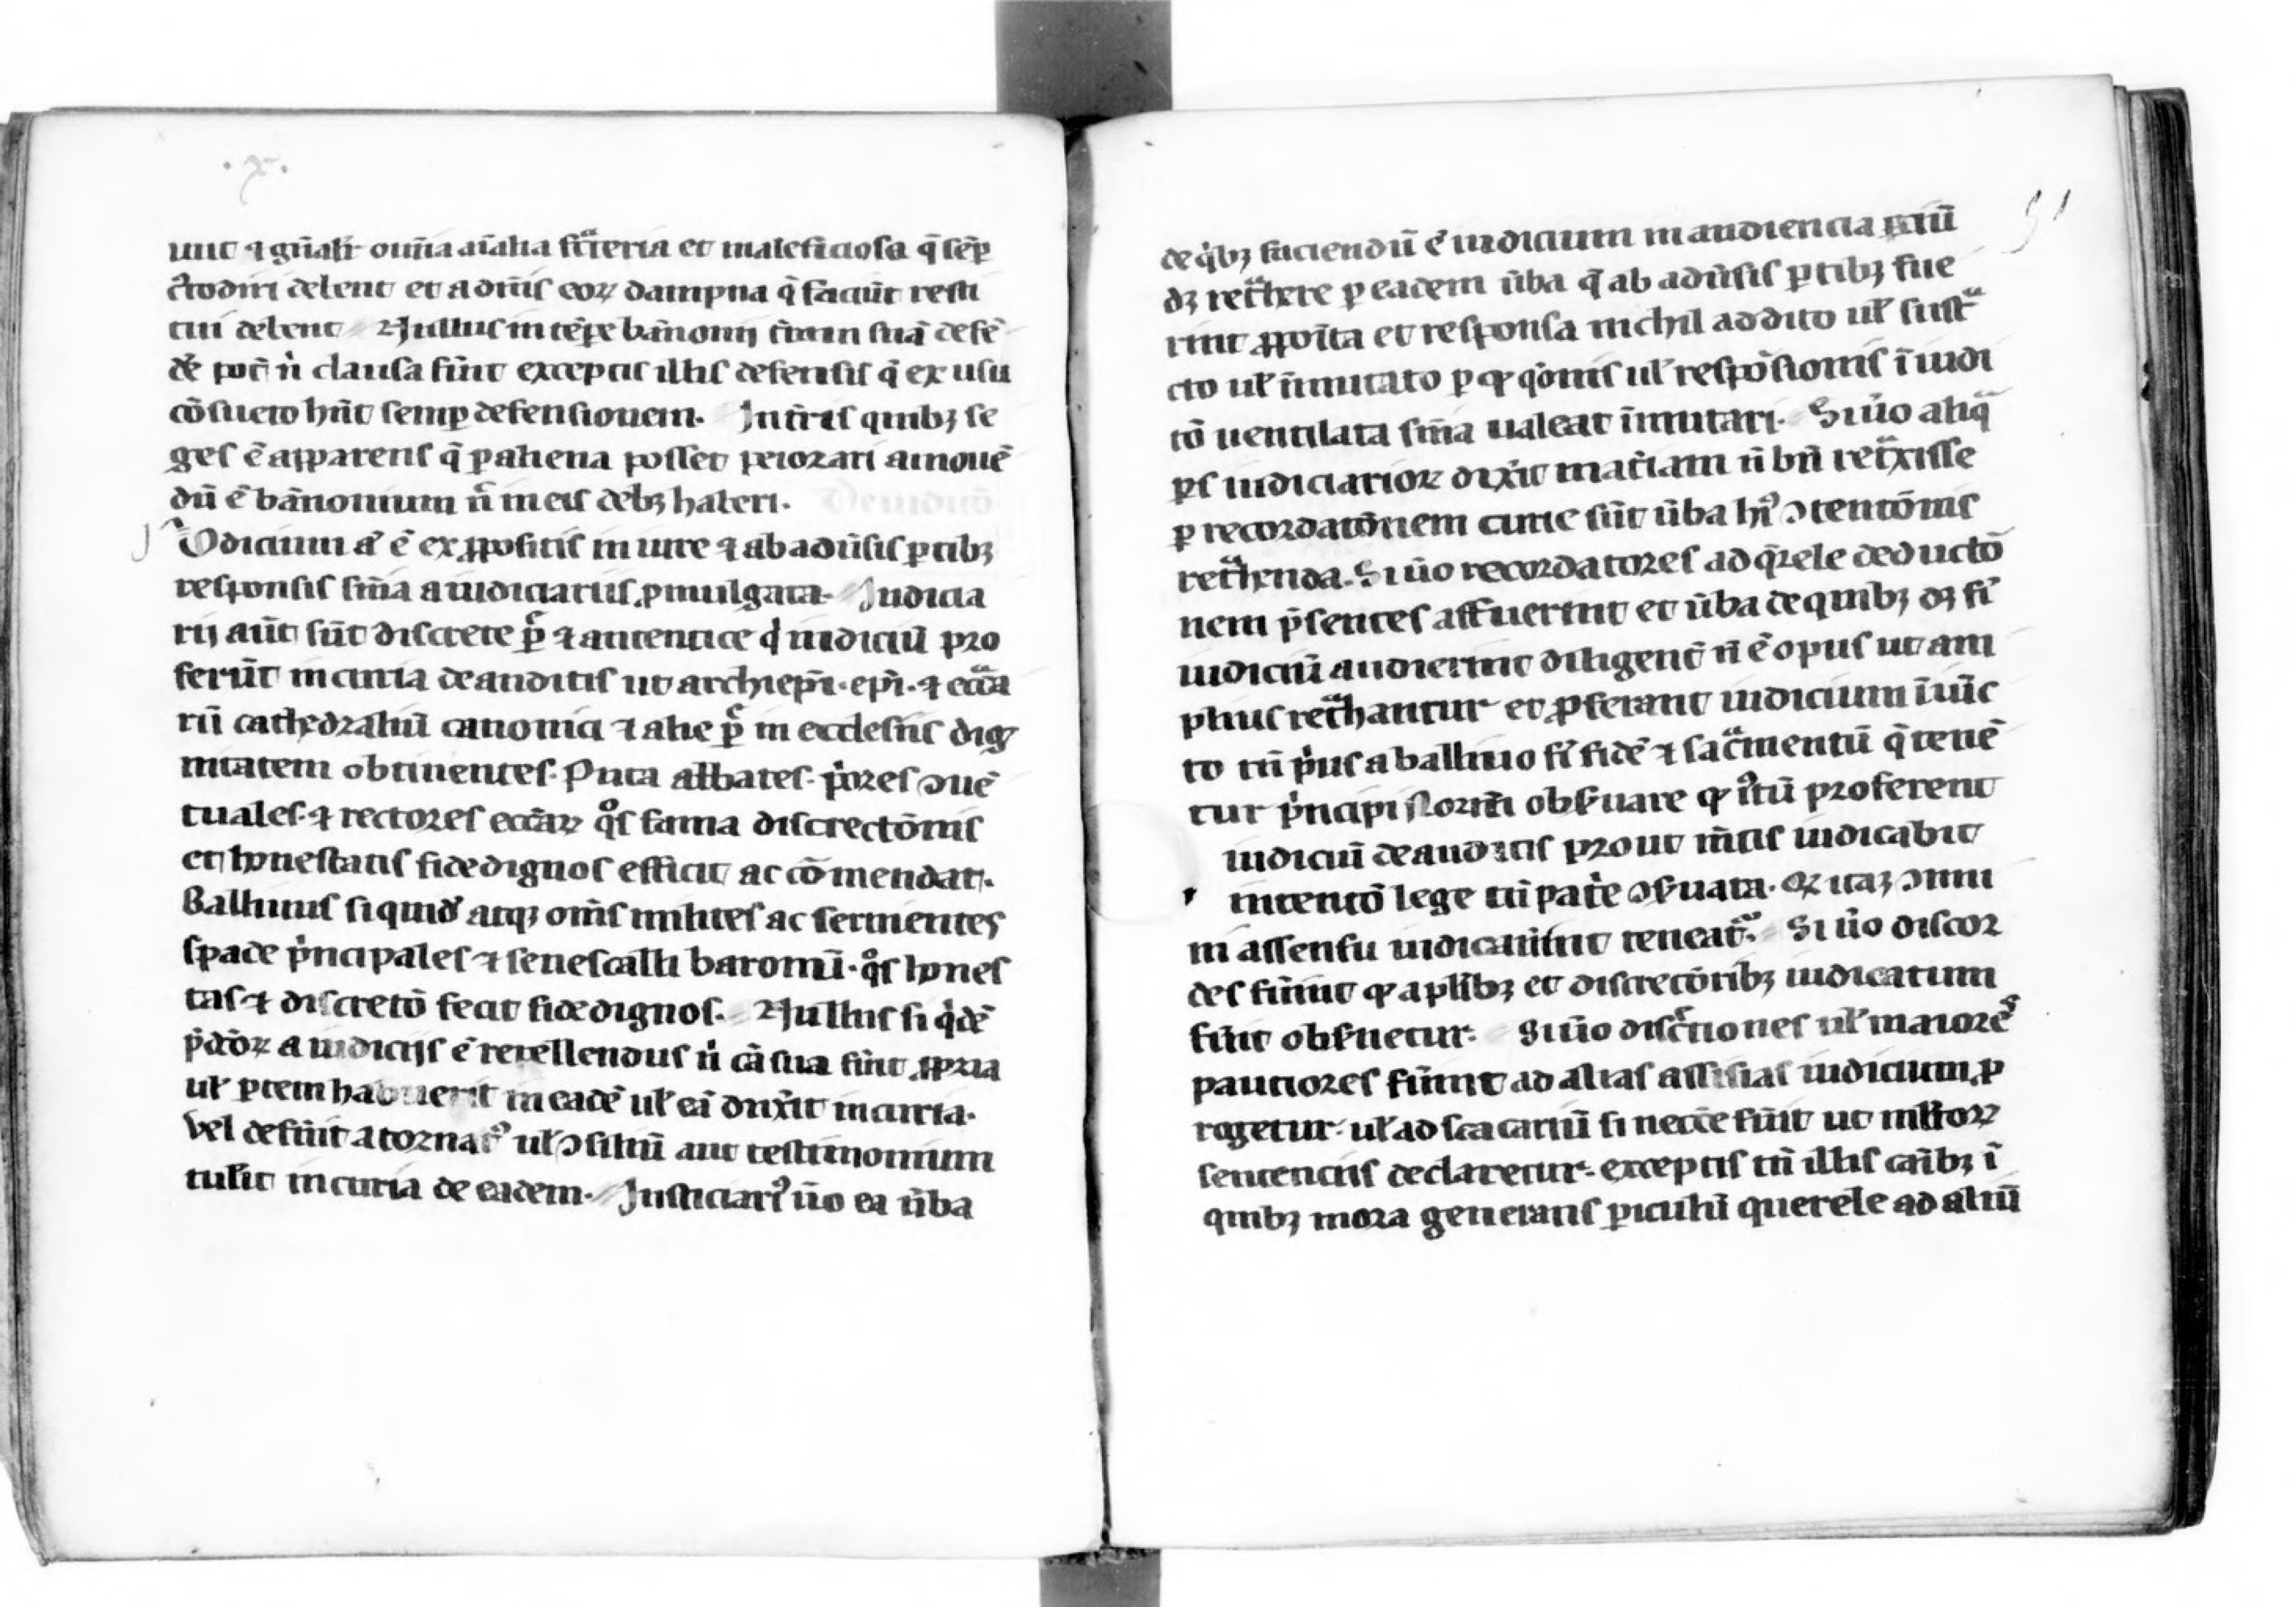 .x.
unt ⁊ gn̄alit̄ om̄ia aīalia fct̾eria et maleficiosa q̄ sēp
c̾todiri debent et a dn̄is eoꝝ dampna q̄ faciūt resti
tui debent Nullus in tēpe bānonij t̾ram suā defē
dē pot̄ n̾ clausa fūit exceptis illis defensis q̄ ex usu
cōsueto hn̄t semꝑ defensionem. In t̾ris quibꝫ se
ges ē apparens q̄ ꝑ aliena posset peiorari amouē
dū ē bānonium n̄ in eis dēbꝫ haberi.
Udicium aū ē ex ꝓpositis in iure ⁊ ab adūsis ꝑtibꝫ
responsis sn̄ia a iudiciariis ꝓmulgata. Judicia
rij aūt sūt discrete ꝑ̄ ⁊ autentice q̾ iudiciū pro
ferūt in curia de auditis ut archiep̄i. ep̄i. ⁊ ecc̄a
rū cathedraliū canonici ⁊ alie ꝑ̄ in ecclesiis dig
nitatem obtinentes. Puta abbates. p̾ores ↄuē
tuales. ⁊ rectores ecc̄aꝝ q̊s fama discrectōnis
et honestatis fidedignos efficit ac cōmendat.
Balliuus siquid̾ atqꝫ om̄s milites ac seruientes
spade p̾ncipales ⁊ senescalli baronū. q̊s hones
tas ⁊ discretō fecit fidedignos. Nullus si q̾dē
p̾dc̄oꝝ a iudiciis ē repellendus n̾ cā sua fūit ꝓpria
ul̄ ꝑtem habuerit in eadē ul̄ eā dux̾it in curia.
Vel defūit atornatꝰ ul̄ ↄsiliū aut testimonium
tul̾it in curia de eadem. Justiciariꝰ ūo ea ūba
51
de q̾bꝫ faciendū ē iudicium in audiencia ꝑciū
dꝫ ret̾here ꝑ eadem ūba q̄ ab adūsis ꝑtibꝫ fue
rint ꝓpoīta et responsa nichil addito ul̄ sust̾
cto ul̄ īmutato ꝑ ꝙ q̾onis ul̄ respōsionis ī iudi
tō uentilata sn̄ia ualeat īmutari. Si ūo aliq̄
ꝑs iudiciarioꝝ dix̾it mat̾iam n̄ bn̄ ret̾xisse
ꝑ recordatōnem curie sūt ūba hiꝰ ↄtentōnis
ret̾henda. Si ūo recordatores ad q̾rele deductō
nem p̾sentes affuerint et ūba de quibꝫ dꝫ fi̾
iudiciū audierint diligent̾ n̄ ē opus ut am
plius ret̾hantur et ꝓferant iudicium īiūc
to tn̄ p̾us a balliuo fi̾ fidē ⁊ sac̾mentū q̾ tenē
tur p̾ncipi Norm̄i obs̾uare ꝙ i̾tū proferent
iudiciū de auditis prout m̄tis iudicabit
intentō lege tn̄ pat̾e ↄs̾uata. Qꝝ itaꝫ ↄmu
ni assensu iudicauīnt teneat̾. Si ūo discor
des fūint ꝙ a pl̾ibꝫ et discretōribꝫ iudicatum
fūit obs̾uetur. Si ūo disc̾tiones ul̄ maiores
pauciores fūint ad alias assisias iudicium ꝓ
rogetur. ul̄ ad scacariū si necc̄e fūit ut ml̾toꝝ
sentenciis declaretur. exceptis tn̄ illis cāibꝫ ī
quibꝫ mora generans ꝑiculū querele ad aliū